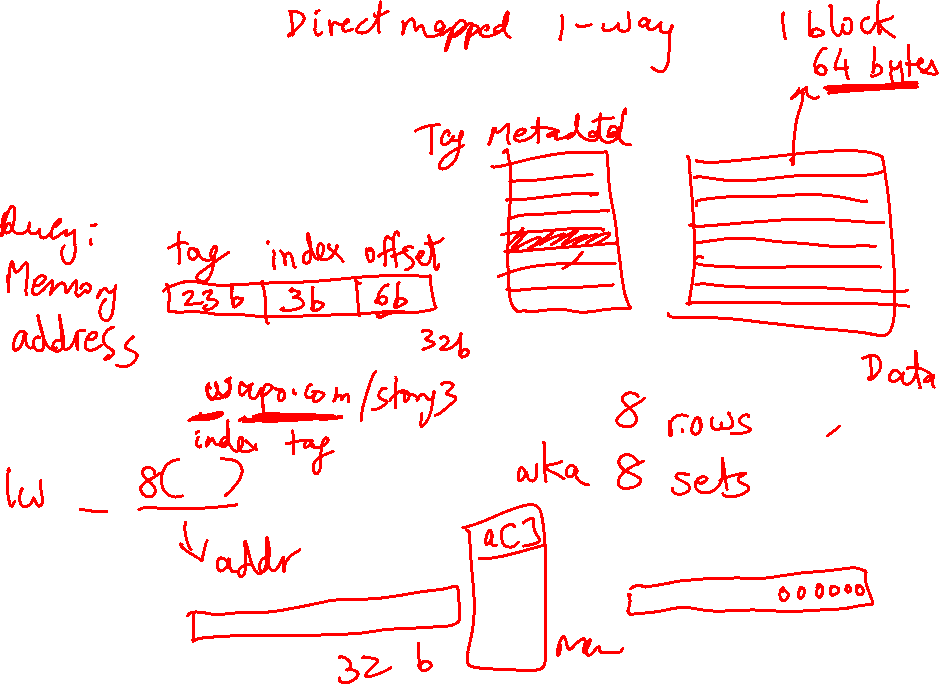 Direct mapped 1-way
1 block
64 bytes
Tag Metadata
Query:
Memory
address
tag index offset
23b 3b 6b
32b
Data
wapo.com/story3
index tag
8 rows
aka 8 sets
lw _ 8( )
addr
a[3]
000000
32 b